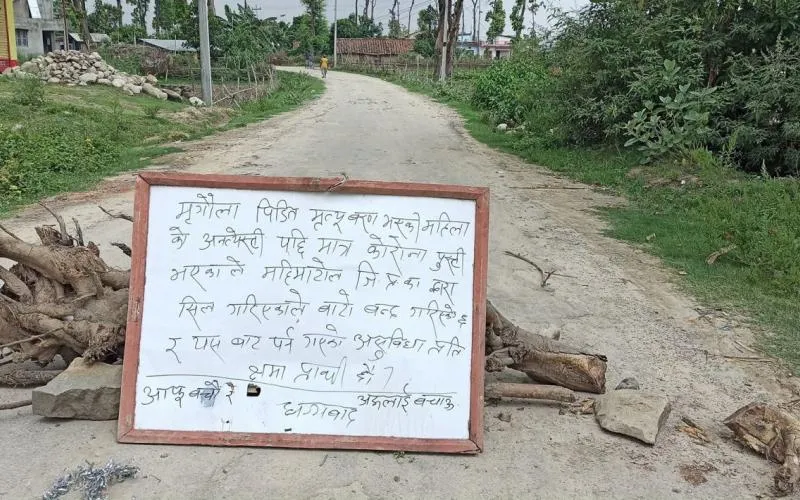 मृगौला पिडित मृत्यू वरण भएकी महिला
को अन्त्येस्टी पछि मात्र कोरोना पुस्टी
भएकाले महिमाटोल जि प्र का द्वारा
सिल गरिएकाले बाटो बन्द गरिएको छ
र यस बाट पर्न गएको असुविधा प्रति
क्षमा प्रार्थी छौं ।
आफू बचौ र अरुलाई बचाऊ
धन्यवाद